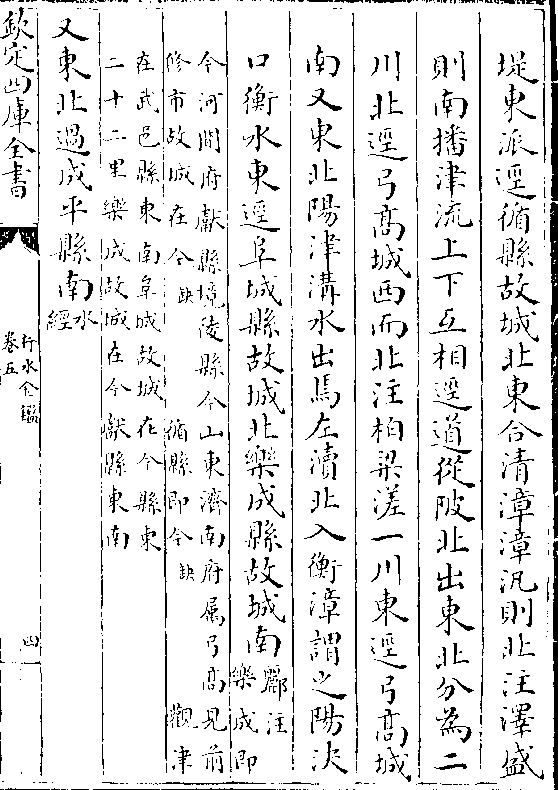 堤東派逕脩縣故城北東合清漳漳汎則北注澤盛
則南播津流上下互相逕通從陂北出東北分為二
川北逕弓髙城西而北注柏梁溠一川東逕弓髙城
南又東北陽津溝水出焉左瀆北入衡漳謂之陽決
口衡水東逕阜城縣故城北樂成縣故城南酈注
樂成即
今河間府獻縣境陵縣今山東濟南府属弓髙見前
修市故城在今缺 脩縣即今缺 觀津
在武邑縣東南阜城故城在今縣東
二十二里樂成故城在今獻縣東南
又東北過成平縣南水經
欽定四庫全書
行水金鑑
卷五
四